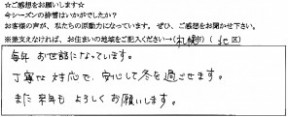 ☆ご感想をお願いします☆
今シーズンの排雪はいかがでしたか?
お客様の声が、私たちの活動力になっています。ぜひ、ご感想をお聞かせ下さい。
※差支えなければ、お住まいの地域をご記入ください→(札幌市)(北区)
毎年 お世話になっています。
丁寧な対応で、安心して冬を過ごせます。
また 来年も よろしくお願いします。